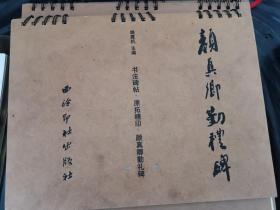 顏真卿勤禮碑
书法碑帖·原拓精印·颜真卿勤礼碑
主编
西泠印社出版社